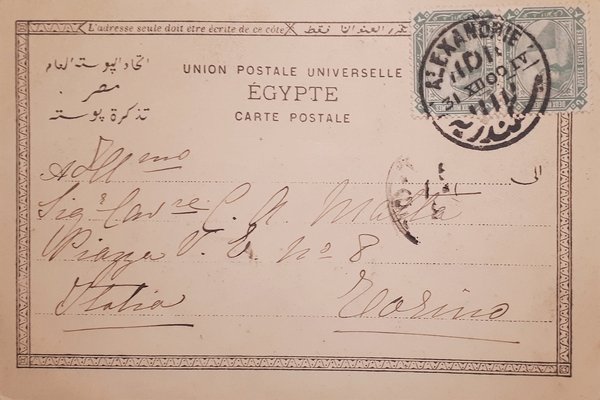 L'adresse seule doit être écrite de ce côté يحرر العنوان هنا فقط
اتحاد البوسته العام
مصر
تذكرة بوسته
UNION POSTALE UNIVERSELLE
ÉGYPTE
CARTE POSTALE
ALEXANDRIE
31 XII 00
الى
Ill.mo
Sig.e Cav.re C. A.
Piazza V. E. Nº 8
Italia Torino